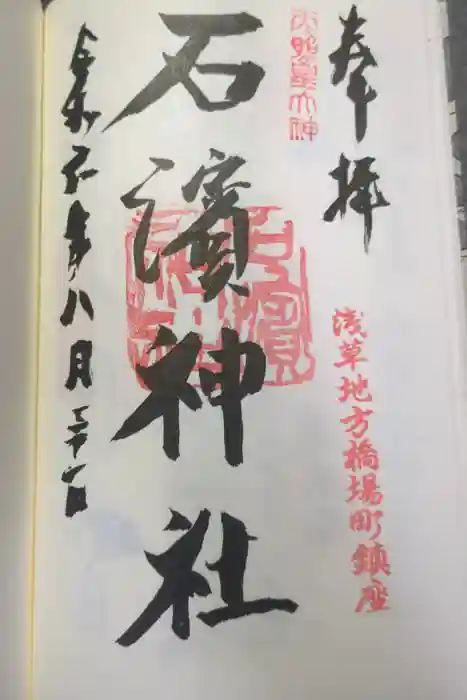 奉拝
浅草地方橋場町鎮座
天照皇大神
石濱神社
令和五年八月